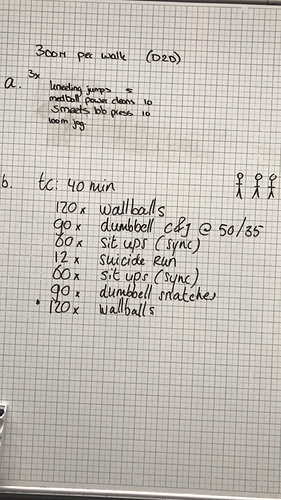 300m per walk (D2D)
a. 3x
kneeling jumps 5
medball power cleans 10
Smaets bb press 10
100m jog
b. tc: 40 min
120x wallballs
90x dumbbell c&j @ 50/35
60x sit ups (sync)
12x suicide run
60x sit ups (sync)
90x dumbbell snatches
120x wallballs